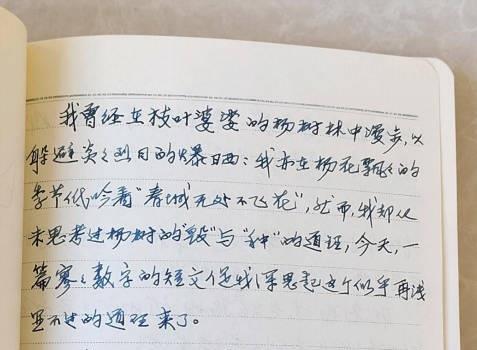 我曾经在枝叶婆娑的杨树林中漫步,以
躲避炎々烈日的爆晒;我亦在杨花飘々的
季节低吟着“春城无处不飞花”,然而,我却从
未思考过杨树的“毁”与“种”的道理,今天,一
篇寥々数字的短文促我深思起这个似乎再浅
显不过的道理来了。